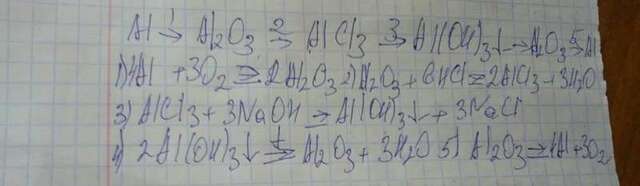 Al →1 Al2O3 2→ AlCl3 3→ Al(OH)3↓ → Al2O3 5→ Al
1) 4Al + 3O2 = 2Al2O3 2) Al2O3 + 6HCl = 2AlCl3 + 3H2O
3) AlCl3 + 3NaOH → Al(OH)3↓ + 3NaCl
4) 2Al(OH)3↓ t→ Al2O3 + 3H2O 5) Al2O3 → 4Al + 3O2